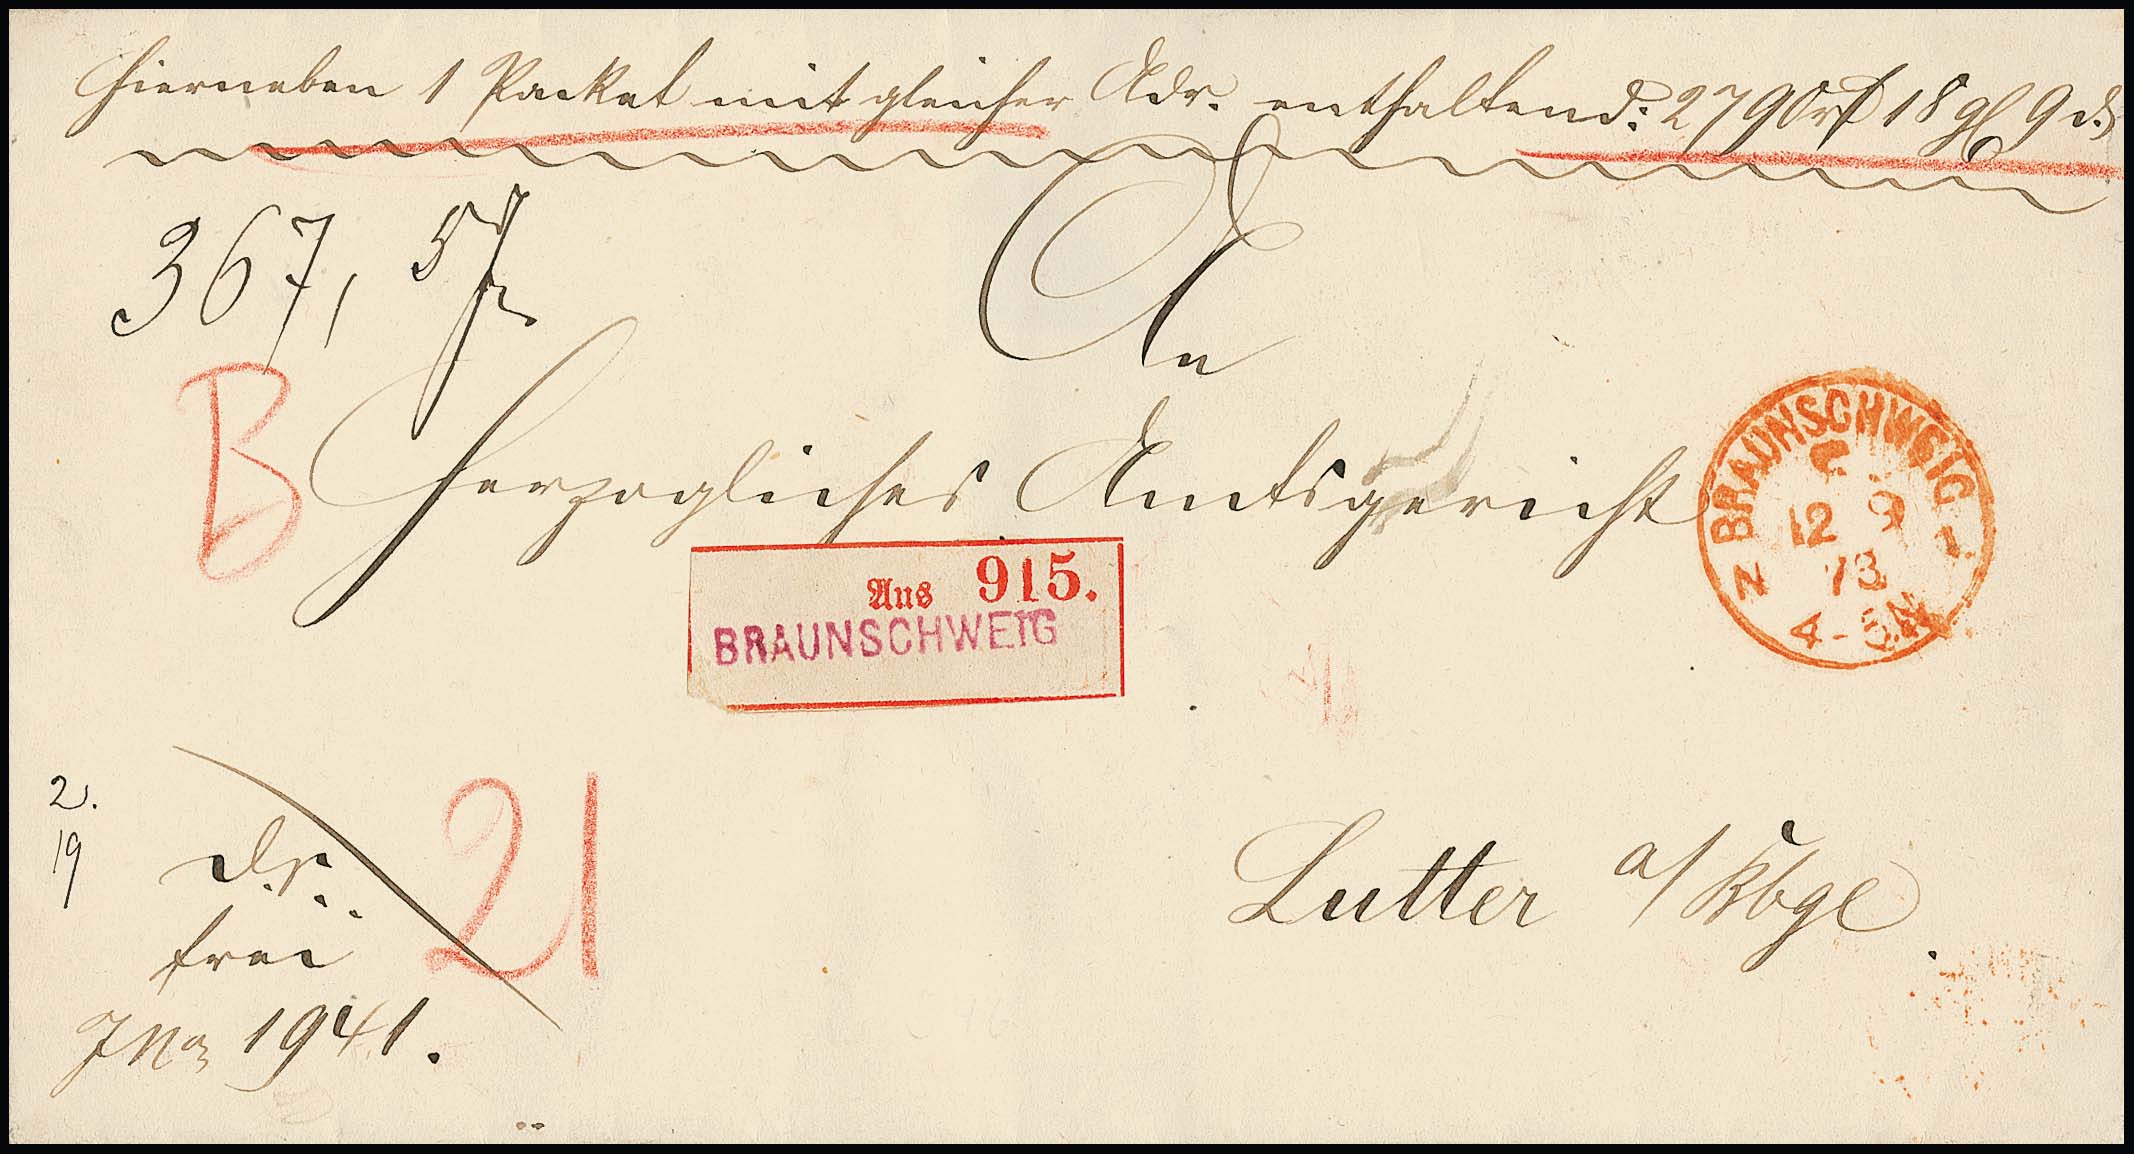 Hierneben 1 Packet mit gleicher Adr. enthaltend: 2790 rℓ 18 gl 9 d.
367, 5/
An
B
Herzogliches Amtsgericht
BRAUNSCHWEIG
12 9
73
4-5N
Aus 915.
BRAUNSCHWEIG
2.
19
d.s.
21
frei
Lutter a/ Kbge
JNo 1941.